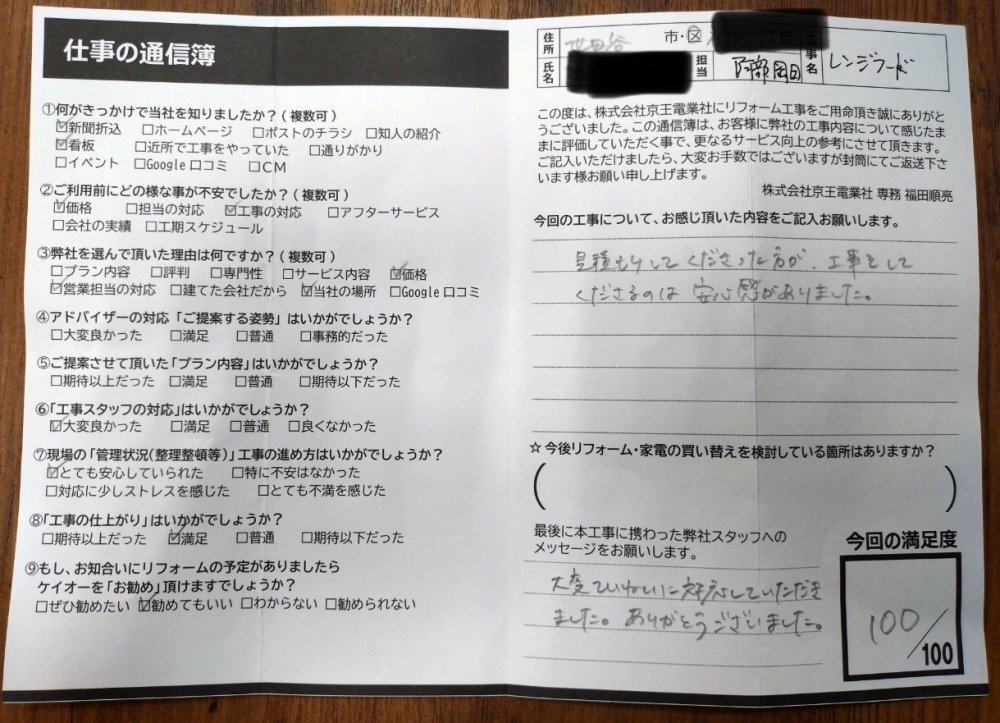 仕事の通信簿
①何がきっかけで当社を知りましたか？(複数可)
☑新聞折込 □ホームページ □ポストのチラシ □知人の紹介
☑看板 □近所で工事をやっていた □通りがかり
□イベント □Google口コミ □CM
②ご利用前にどの様な事が不安でしたか？(複数可)
☑価格 □担当の対応 ☑工事の対応 □アフターサービス
□会社の実績 □工期スケジュール
③弊社を選んで頂いた理由は何ですか？(複数可)
□プラン内容 □評判 □専門性 □サービス内容 ☑価格
☑営業担当の対応 □建てた会社だから ☑当社の場所 □Google口コミ
④アドバイザーの対応「ご提案する姿勢」はいかがでしょうか？
□大変良かった □満足 □普通 □事務的だった
⑤ご提案させて頂いた「プラン内容」はいかがでしょうか？
□期待以上だった □満足 □普通 □期待以下だった
⑥「工事スタッフの対応」はいかがでしょうか？
☑大変良かった □満足 □普通 □良くなかった
⑦現場の「管理状況(整理整頓等)」工事の進め方はいかがでしょうか？
☑とても安心していられた □特に不安はなかった
□対応に少しストレスを感じた □とても不満を感じた
⑧「工事の仕上がり」はいかがでしょうか？
□期待以上だった ☑満足 □普通 □期待以下だった
⑨もし、お知合いにリフォームの予定がありましたら
ケイオーを「お勧め」頂けますでしょうか？
□ぜひ勧めたい ☑勧めてもいい □わからない □勧められない
住所 世田谷 市・区 丁目
氏名 担当 阿部岡田 工事名 レンジフード
この度は、株式会社京王電業社にリフォーム工事をご用命頂き誠にありがと
うございました。この通信簿は、お客様に弊社の工事内容について感じたま
まに評価していただく事で、更なるサービス向上の参考にさせて頂きます。
ご記入いただけましたら、大変お手数ではございますが封筒にてご返送下さ
います様お願い申し上げます。
株式会社京王電業社 専務 福田順亮
今回の工事について、お感じ頂いた内容をご記入お願いします。
見積もりしてくださった方が、工事をして
くださるのは 安心感がありました。
☆今後リフォーム・家電の買い替えを検討している箇所はありますか？
( )
最後に本工事に携わった弊社スタッフへの
メッセージをお願いします。
大変ていねいに対応していただき
ました。ありがとうございました。
今回の満足度
100/100